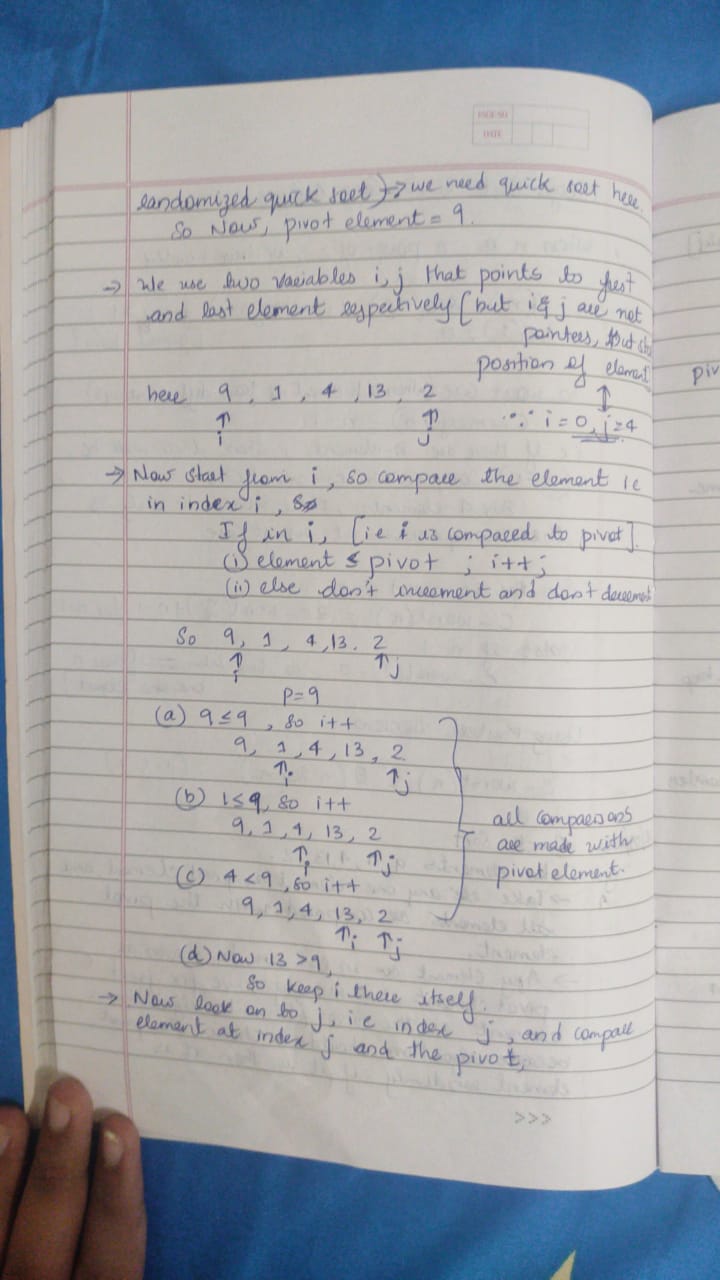 PAGE NO
DATE
randomized quick sort } → we need quick sort here.
So Now, pivot element = 9.
→ We use two variables i, j that points to first
and last element respectively [but i & j are not
pointers, but
position of element
here 9, 1, 4, 13, 2 ↕
↑ ↑ ∵ i = 0, j = 4
i j
→ Now start from i, so compare the element ie
in index i, so
If in i, [ie i is compared to pivot].
(i) element ≤ pivot ; i++;
(ii) else don't increment and don't decrement
So 9, 1, 4, 13, 2
↑i ↑j
P=9
(a) 9≤9, so i++
9, 1, 4, 13, 2
↑i ↑j
(b) 1≤9, so i++
9, 1, 4, 13, 2
↑i ↑j
(c) 4<9, so i++
9, 1, 4, 13, 2
↑i ↑j
all comparisons
are made with
pivot element.
(d) Now 13 >9,
So keep i there itself.
→ Now look on to j, ie index j, and compare
element at index j and the pivot,
>>>
piv